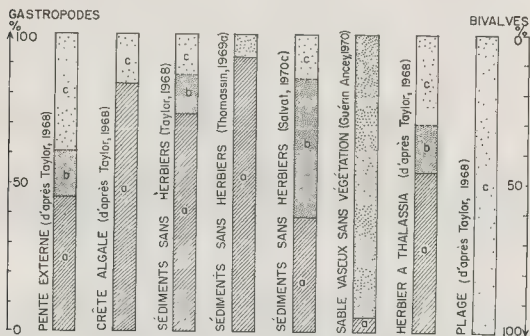 GASTROPODES
BIVALVES
%
%
100
50
0
0
50
100
PENTE EXTERNE (d'après Taylor, 1968)
c
b
a
CRÊTE ALGALE (d'après Taylor, 1968)
c
a
SÉDIMENTS SANS HERBIERS (Taylor, 1968)
c
b
a
SÉDIMENTS SANS HERBIERS (Thomassin, 1969a)
a
SÉDIMENTS SANS HERBIERS (Salvat, 1970c)
c
b
a
SABLE VASEUX SANS VÉGÉTATION (Guérin Ancey, 1970)
a
HERBIER A THALASSIA (d'après Taylor, 1968)
c
b
a
PLAGE (d'après Taylor, 1968)
c